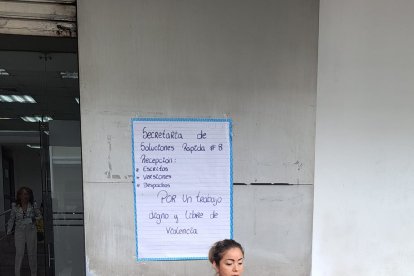 Secretaria de
Soluciones Rapida # 8
Recepcion:
* Escritos
* Versiones
* Despachos
Por un trabajo
digno y libre de
violencia